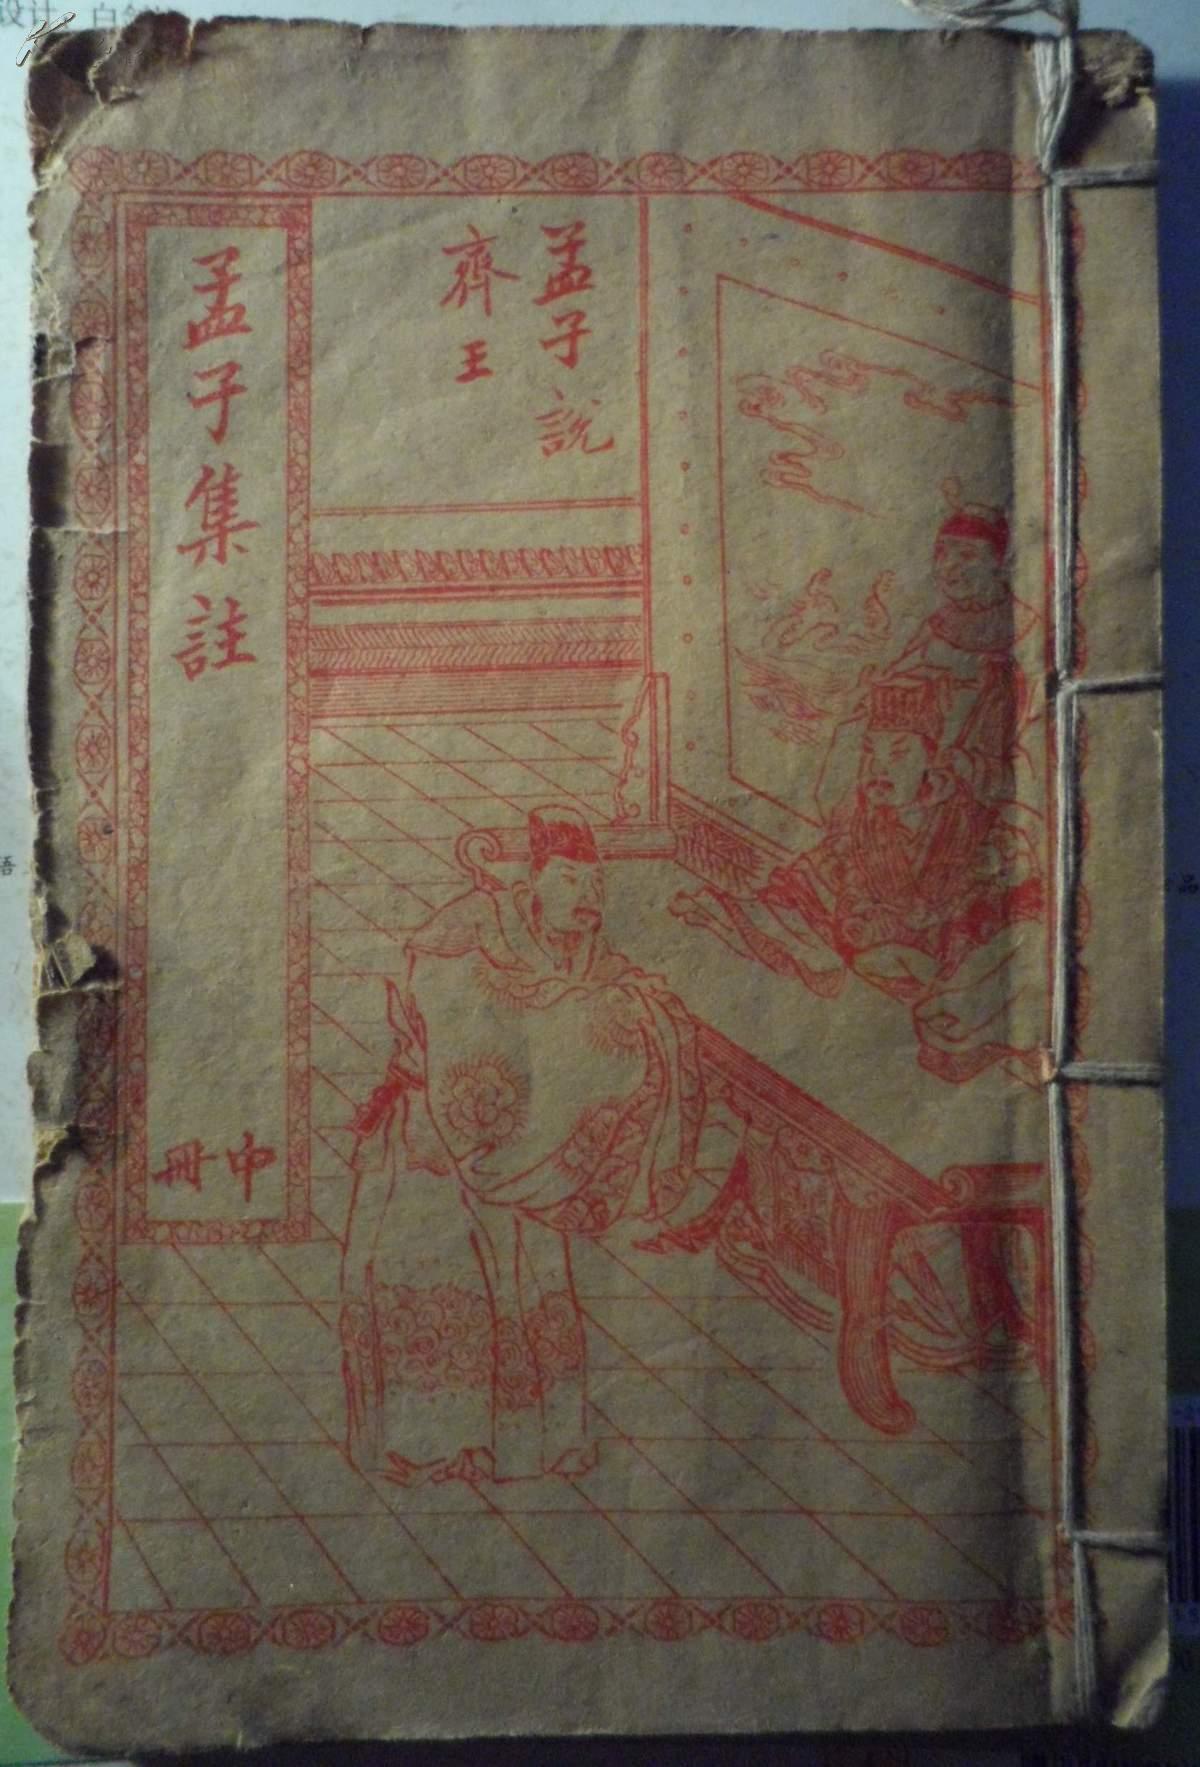 孟子說
齊王
孟子集註
中冊